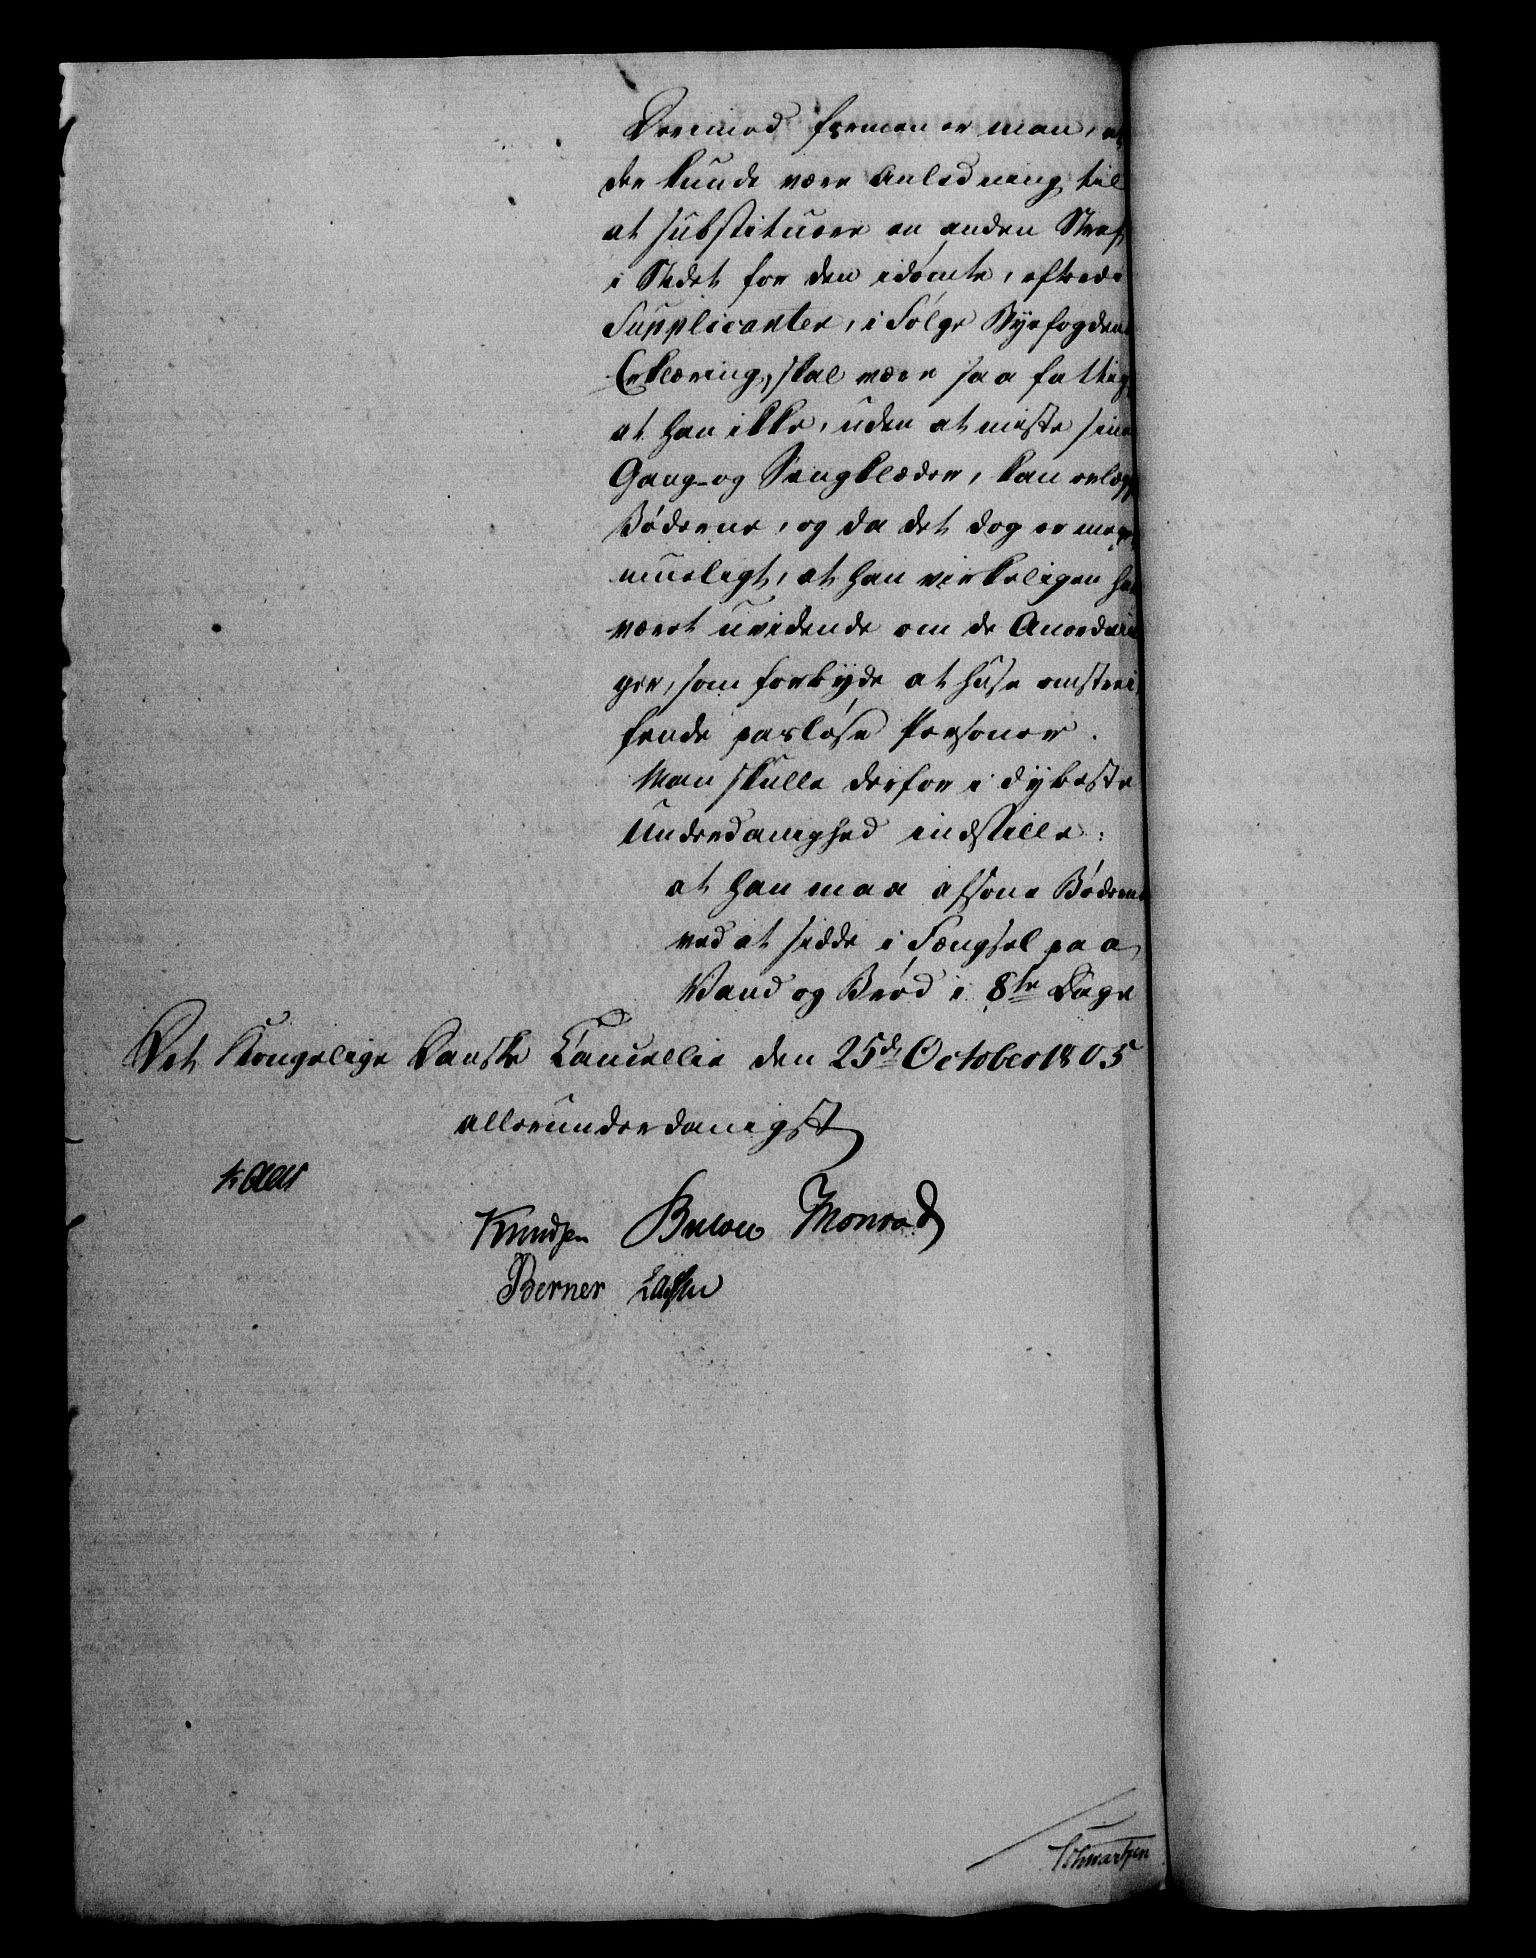 Derimod formener man, at
der kunde være Anledning til
at substituere en anden Straf
i Stedet for den idömte, efterdi
Supplicanten, i Fölge Byefogdens
Erklæring, skal være saa fattig,
at han ikke, uden at miste sine
Gang- og Sengklæder, kan erlægge
Böderne, og da det dog er meget
mueligt, at han virkeligen har
været uvidende om de Anordnin
ger, som forbyde at huse omstrei
fende pasløse Personer.
Man skulle derfor i dybeste
Underdanighed indstille:
at han maa afsone Böderne
ved at sidde i Fængsel paa
Vand og Bröd i 8te Dage
Det Kongelige Danske Cancellie den 25de October 1805
allerunderdanigst
Kaas
Knudsen Bülow Monrad
Berner Lassen
Schwartzen